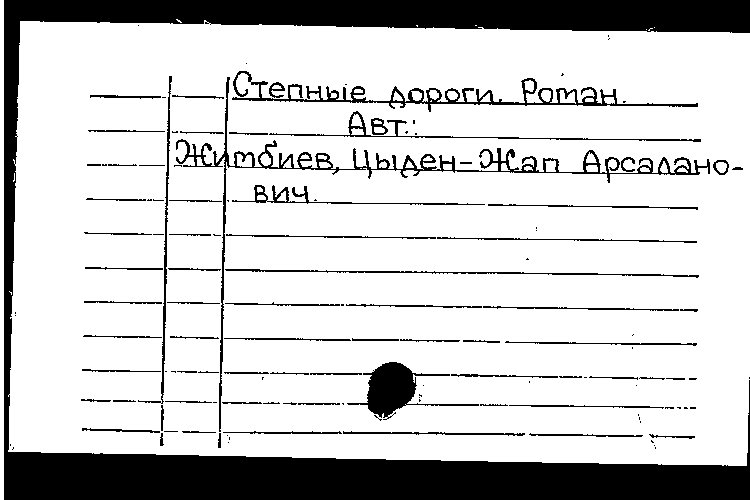 Степные дороги. Роман.
Авт.:
Жимбиев, Цыден-Жап Арсалано-
вич.